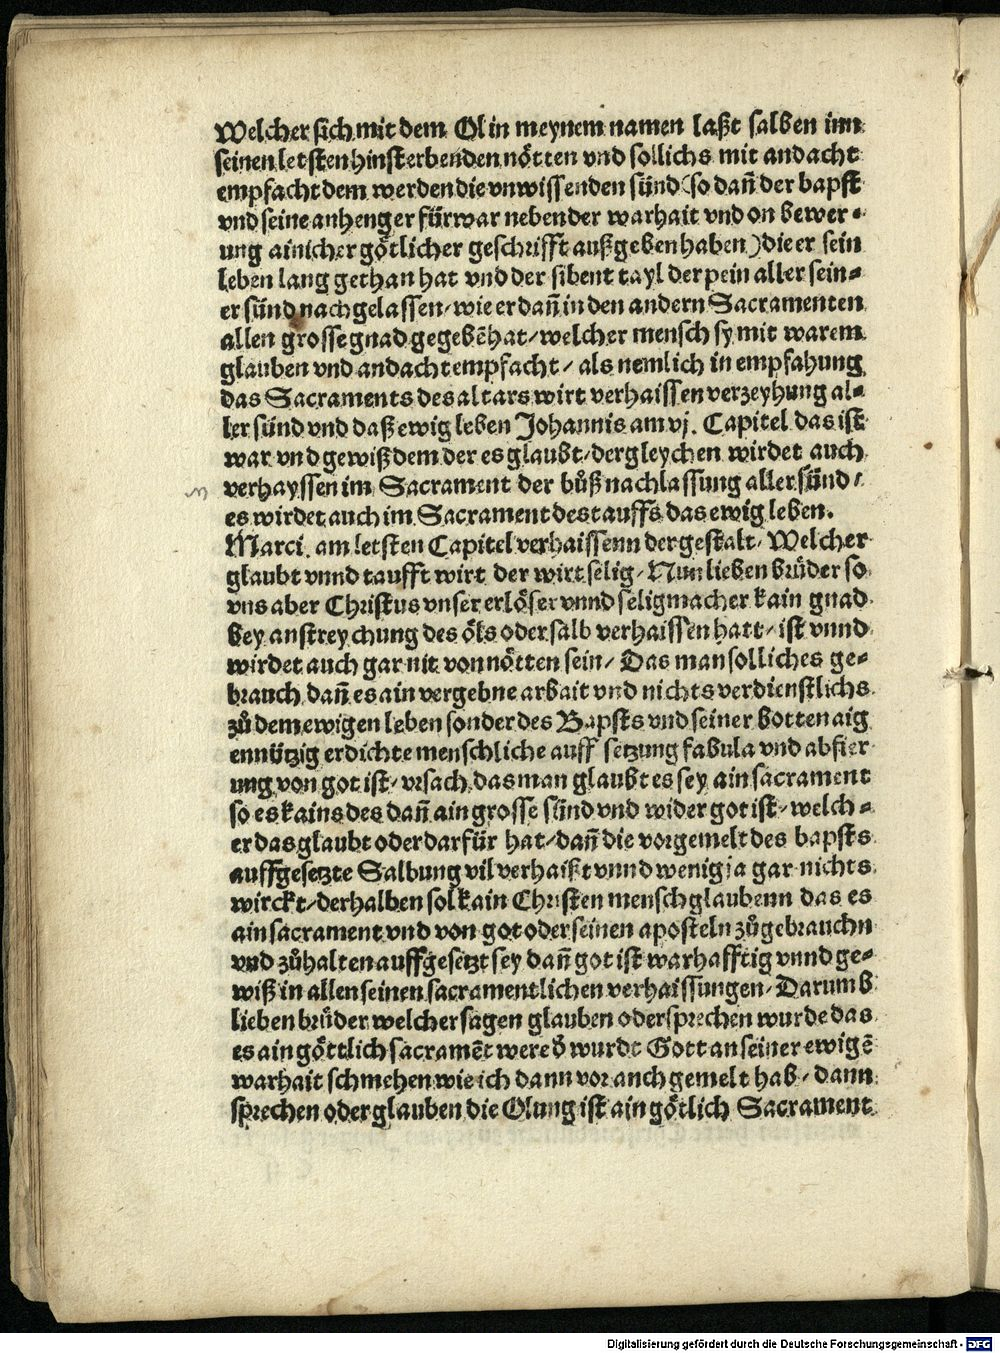 Welcher sich mit dem Öl in meynem namen laßt salben inn
seinen letsten hinsterbenden nötten vnd sollichs mit andacht
empfacht dem werden die vnwissenden sünd (so dañ der bapst
vnd seine anhenger fürwar neben der warhait vnd on bewer-
ung ainicher götlicher geschrifft außgeben haben) die er sein
leben lang gethan hat vnd der sibent tayl der pein aller sein-
er sünd nachgelassen/ wie er dañ in den andern Sacramenten
allen grosse gnad gegebẽ hat/ welcher mensch sy mit warem
glauben vnd andacht empfacht/ als nemlich in empfahung
das Sacraments des altars wirt verhaissen verzeyhung al-
ler sünd vnd daß ewig leben Johannis am vj. Capitel das ist
war vnd gewiß dem der es glaubt/ dergleychen wirdet auch
verhayssen im Sacrament der bůß nachlassung aller sünd/
es wirdet auch im Sacrament des tauffs das ewig leben.
Marci. am letsten Capitel verhaissenn der gestalt/ Welcher
glaubt vnnd taufft wirt der wirt selig/ Nun lieben brüder so
vns aber Christus vnser erlöser vnnd seligmacher kain gnad
bey anstreychung des öls oder salb verhaissen hatt/ ist vnnd
wirdet auch gar nit von nötten sein/ Das man solliches ge-
brauch dañ es ain vergebne arbait vnd nichts verdienstlichs
zů dem ewigen leben sonder des Bapsts vnd seiner botten aig
ennützig erdichte menschliche auff setzung fabula vnd abfier
ung von got ist/ vrsach das man glaubt es sey ain sacrament
so es kains des dañ ain grosse sünd vnd wider got ist/ welch-
er das glaubt oder darfür hat/ dañ die vorgemelt des bapsts
auffgesetzte Salbung vil verhaißt vnnd wenig ja gar nichts
wirckt/ derhalben sol kain Christen mensch glaubenn das es
ain sacrament vnd von got oder seinen aposteln zůgebrauchn
vnd zůhalten auffgesetzt sey dañ got ist warhafftig vnnd ge-
wiß in allen seinen sacramentlichen verhaissungen/ Darumb
lieben brüder welcher sagen glauben oder sprechen wurde das
es ain göttlich sacramẽt were ð wurdt Gott an seiner ewigẽ
warhait schmehen wie ich dann vor anch gemelt hab/ dann
sprechen oder glauben die Ölung ist ain götlich Sacrament
Digitalisierung gefördert durch die Deutsche Forschungsgemeinschaft - DFG